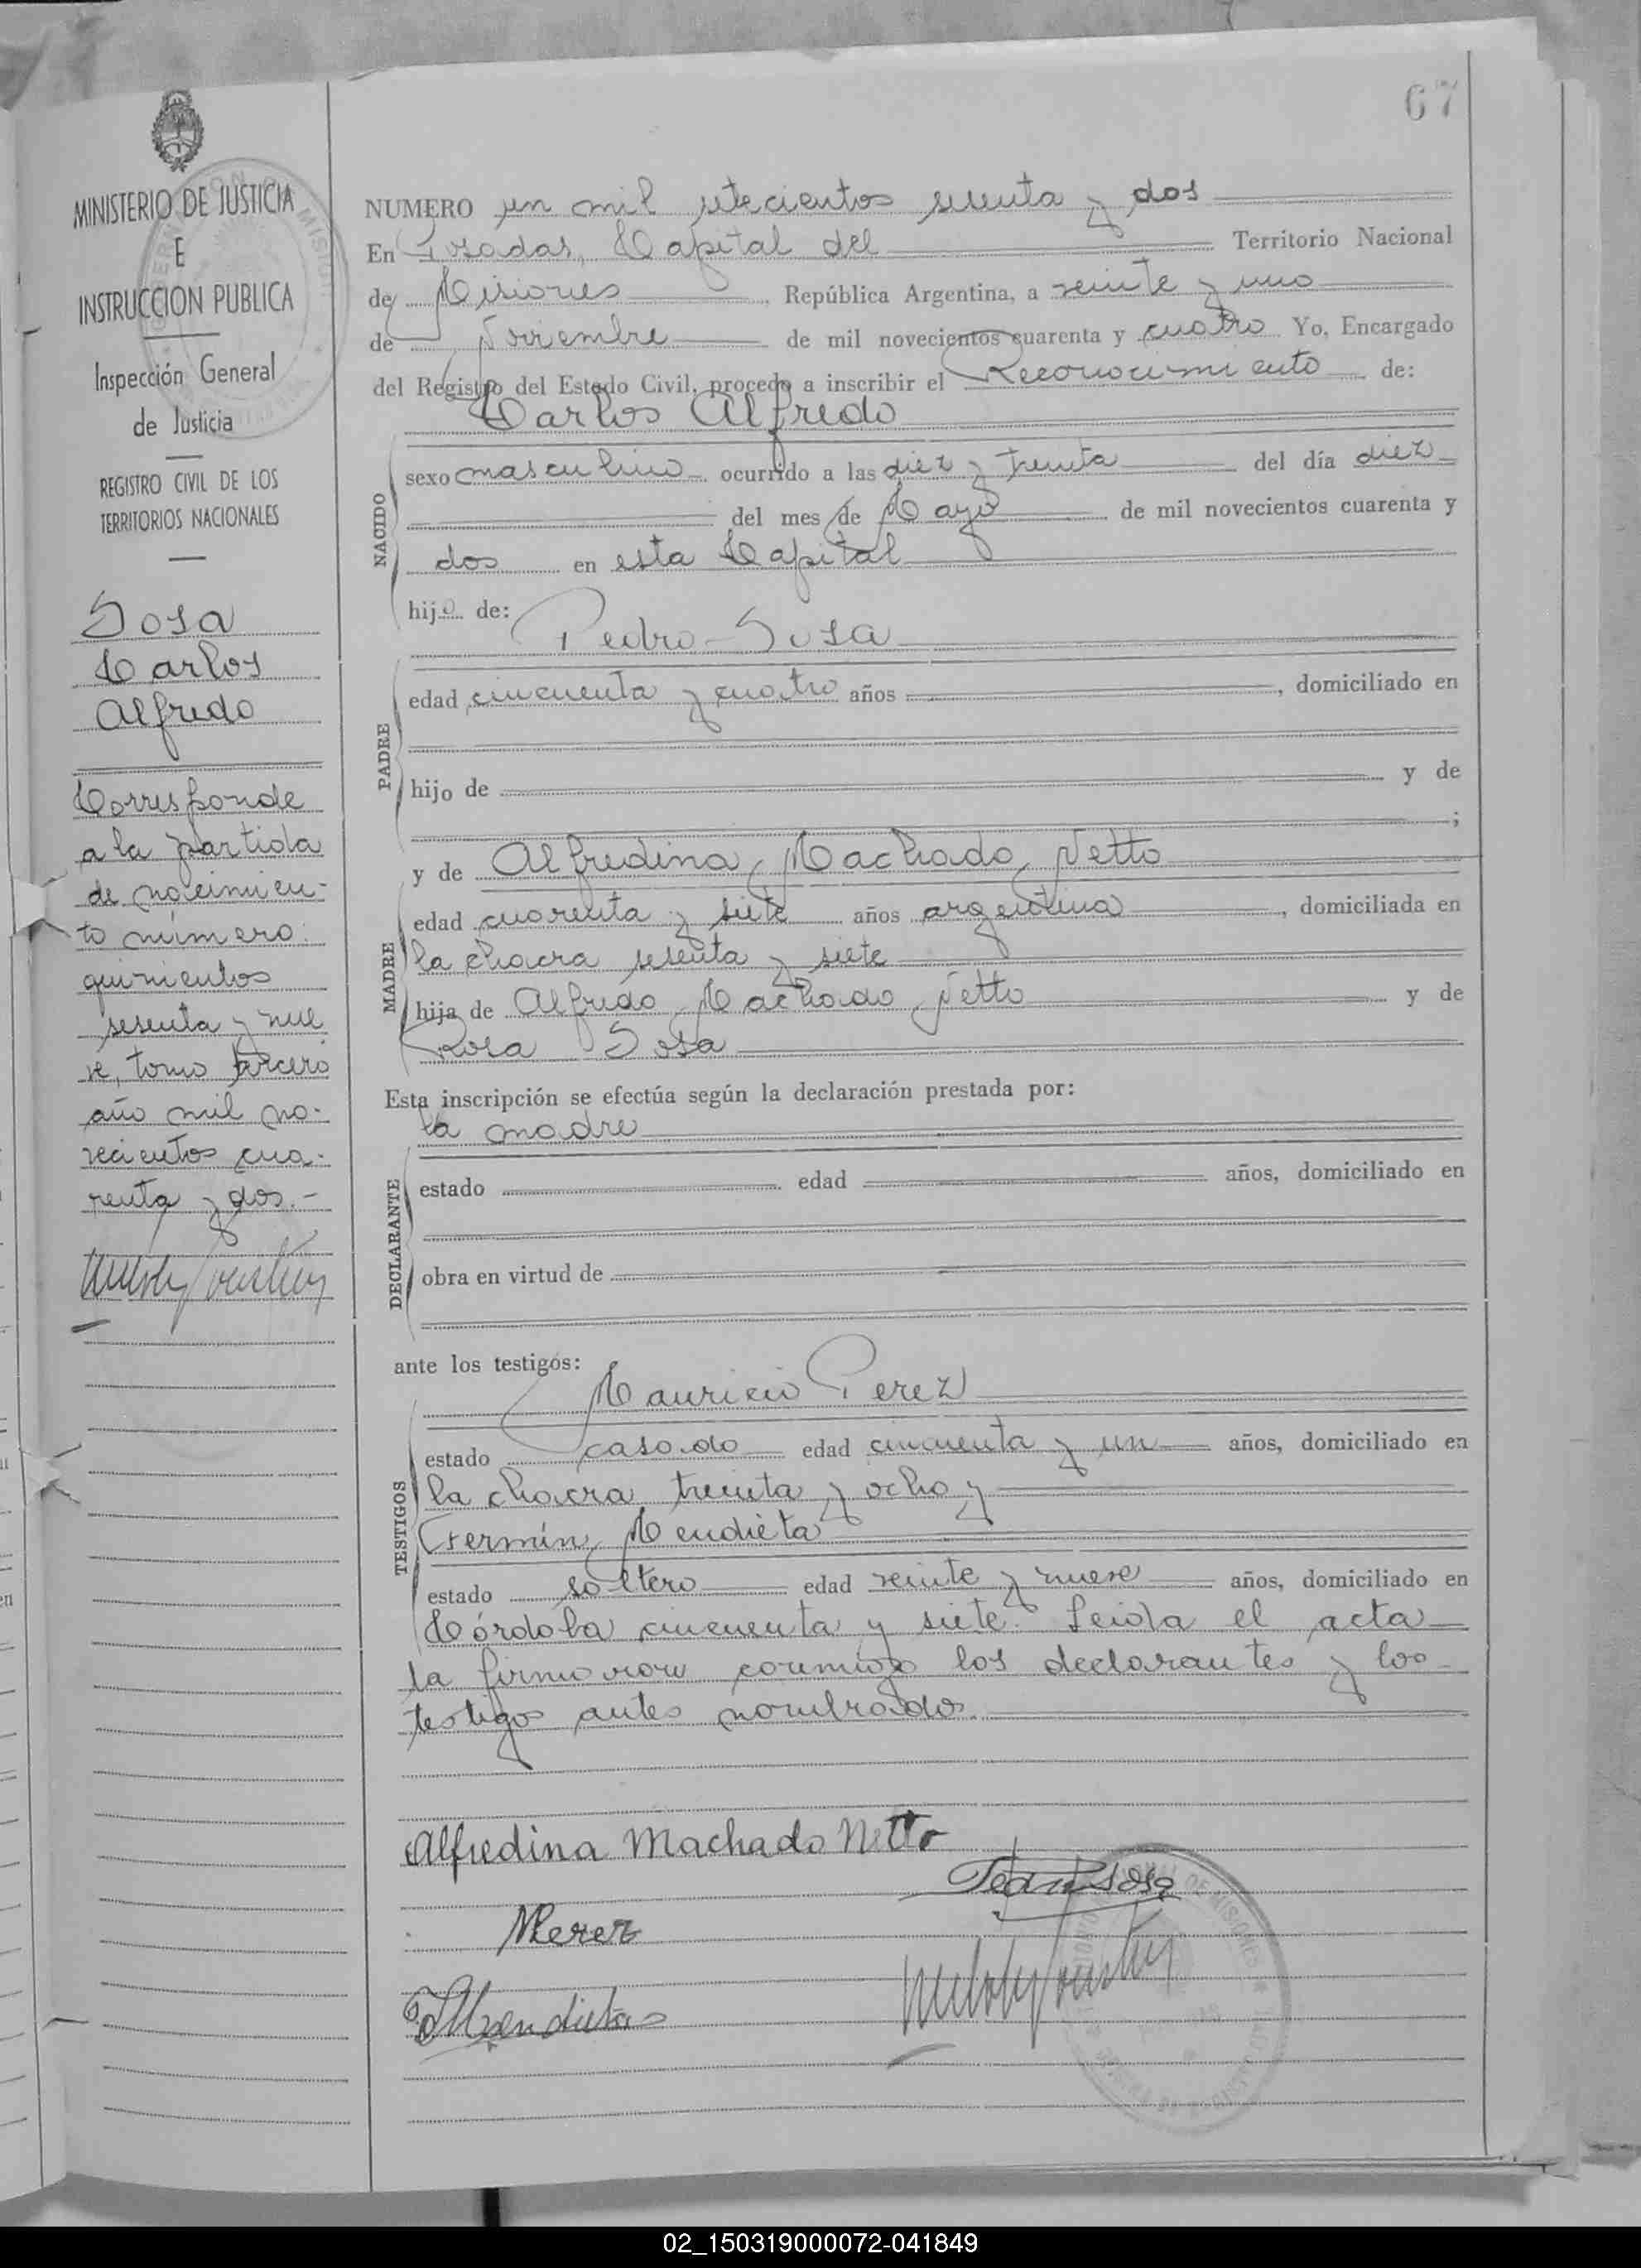 67
MINISTERIO DE JUSTICIA
E
INSTRUCCION PUBLICA
Inspección General
de Justicia
REGISTRO CIVIL DE LOS
TERRITORIOS NACIONALES
Sosa
Carlos
Alfredo
Corresponde
a la partida
de nacimien-
to número
quinientos
sesenta y nue
ve, tomo tercero
año mil no-
vecientos cua-
renta y dos.-
NUMERO un mil setecientos sesenta y dos
En Posadas, Capital del Territorio Nacional
de Misiones República Argentina, a veinte y uno
de Noviembre de mil novecientos cuarenta y cuatro Yo, Encargado
del Registro del Estado Civil, procedo a inscribir el Reconocimiento de:
Carlos Alfredo
NACIDO
sexo masculino ocurrido a las diez y treinta del día diez
del mes de Mayo de mil novecientos cuarenta y
dos en esta Capital
hijo de:
Pedro Sosa
PADRE
edad cincuenta y cuatro años , domiciliado en
hijo de y de
;
y de Alfredina Machado Netto
MADRE
edad cuarenta y siete años argentina, domiciliada en
la chacra sesenta y siete
hija de Alfredo Machado Netto y de
Rosa Sosa
Esta inscripción se efectúa según la declaración prestada por:
la madre
DECLARANTE
estado edad años, domiciliado en
obra en virtud de
ante los testigos:
Mauricio Perez
TESTIGOS
estado casado edad cincuenta y un años, domiciliado en
la chacra treinta y ocho y
Germán Mendieta
estado soltero edad veinte y nueve años, domiciliado en
Córdoba cincuenta y siete. Leida el acta
la firmaron conmigo los declarantes y los
testigos antes nombrados.
Alfredina Machado Netto
Pedro Sosa
MPerez
GMendieta
02_150319000072-041849